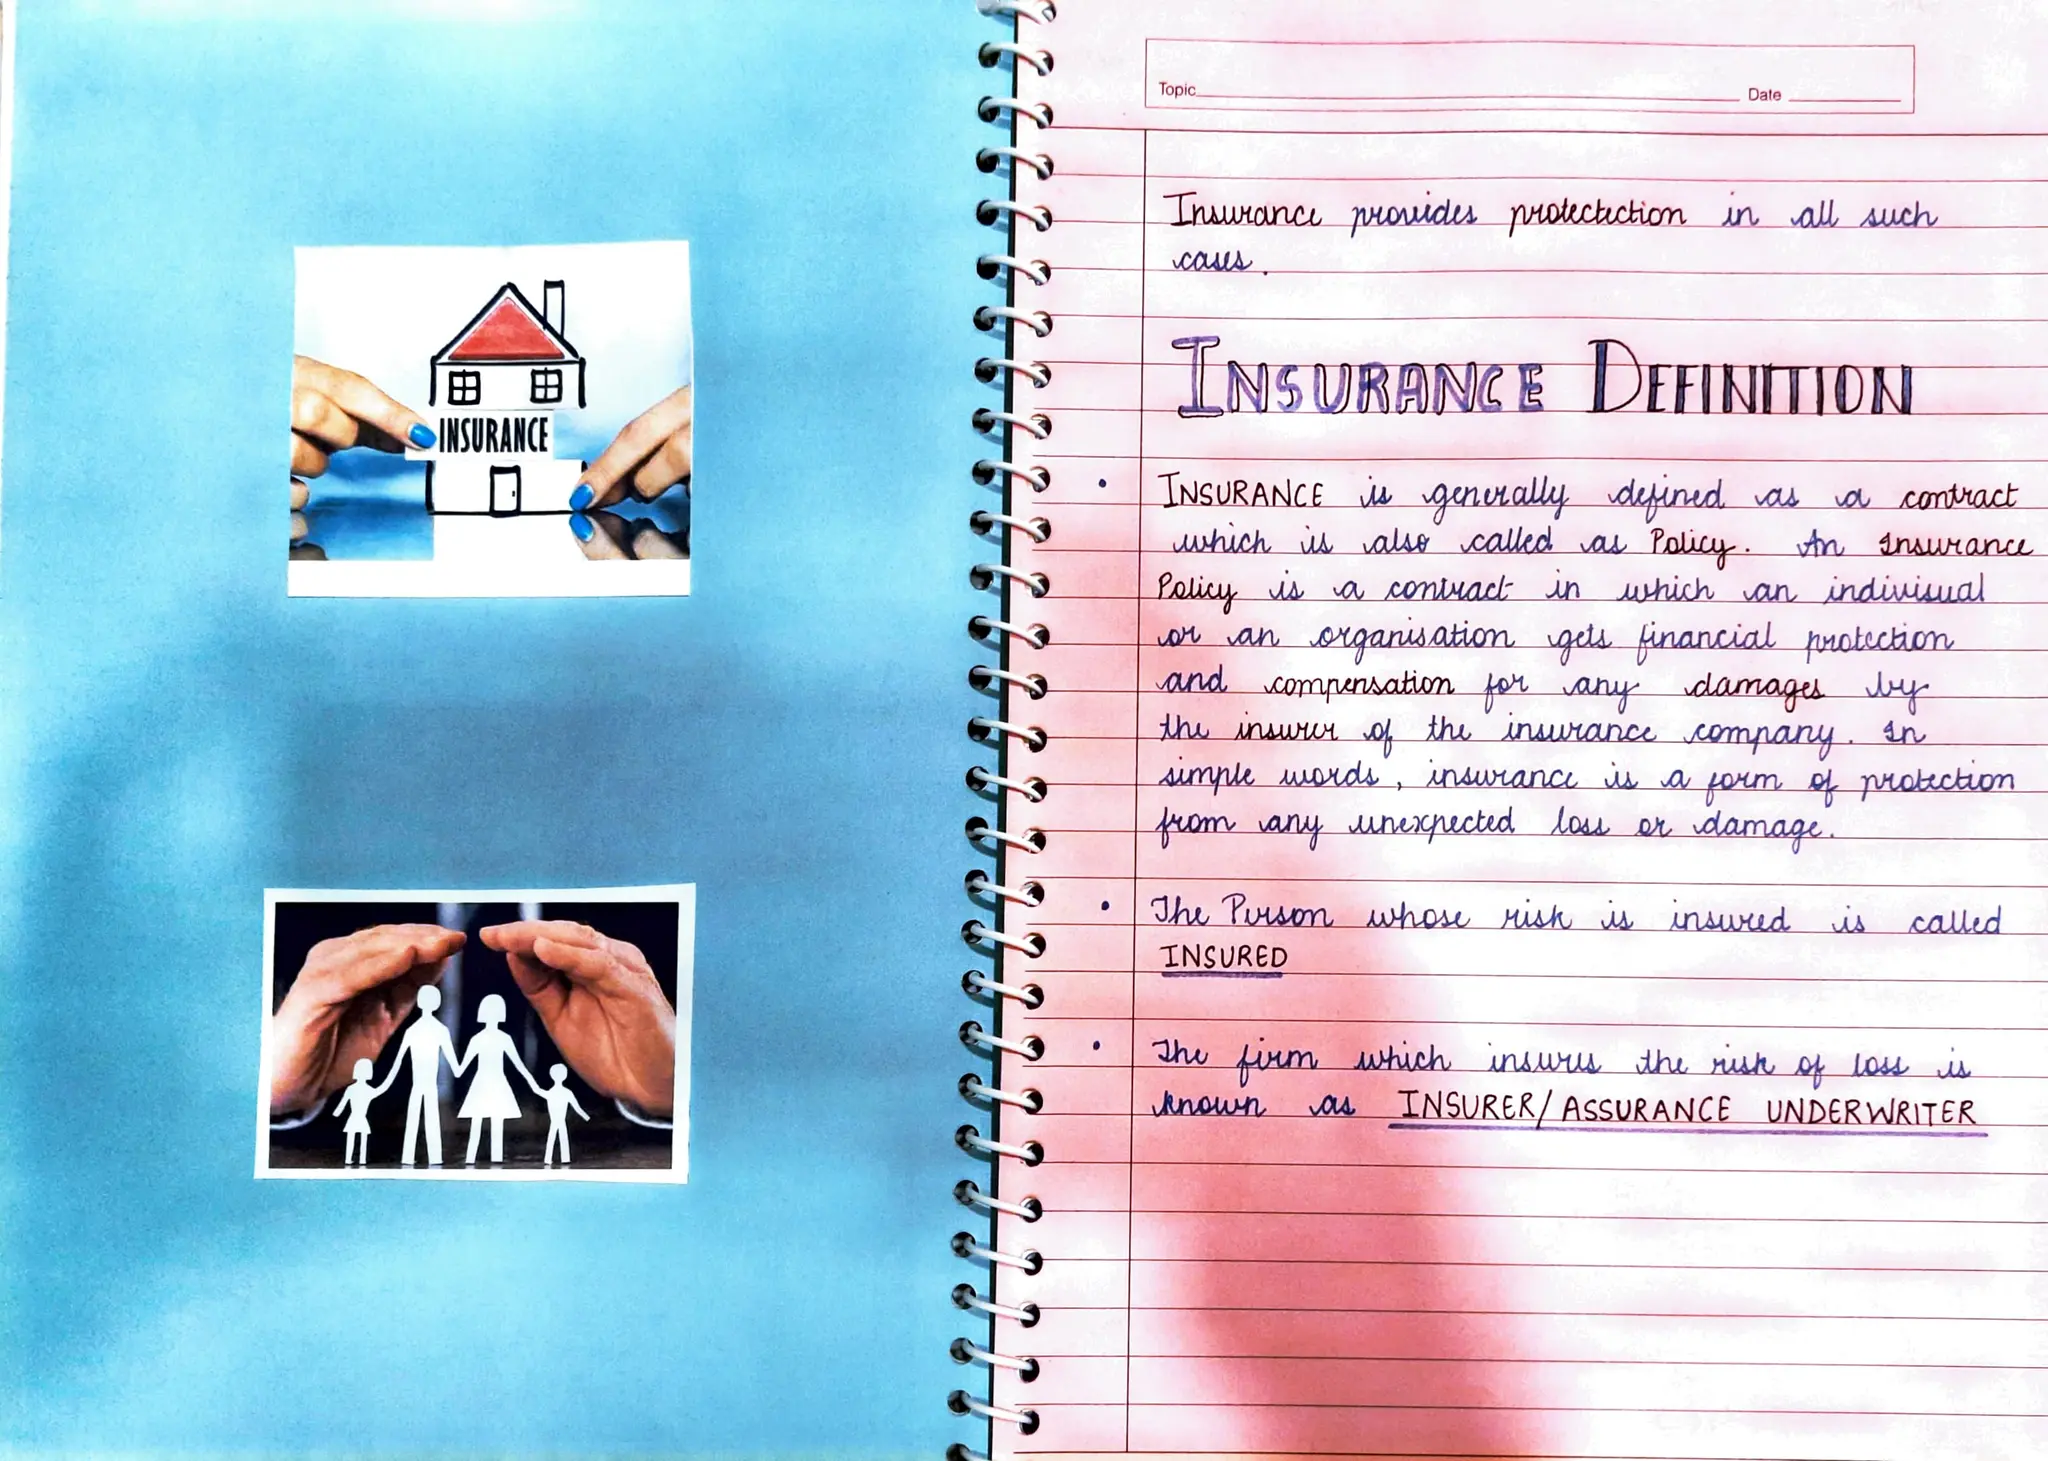 INSURANCE
Topic Date
Insurance provides protectection in all such
cases.
INSURANCE DEFINITION
• INSURANCE is generally defined as a contract
which is also called as Policy. An Insurance
Policy is a contract in which an indivisual
or an organisation gets financial protection
and compensation for any damages by
the insurer of the insurance company. In
simple words, insurance is a form of protection
from any unexpected loss or damage.
• The Person whose risk is insured is called
INSURED
• The firm which insures the risk of loss is
known as INSURER/ASSURANCE UNDERWRITER